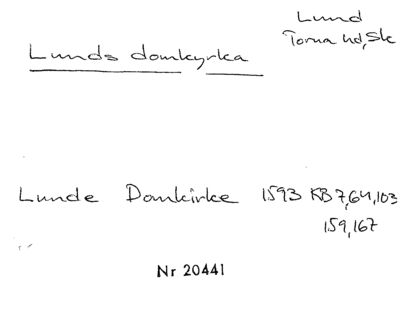 Lund
Torna hd, Sk
Lunds domkyrka
Lunde Domkirke 1593 KB 7,64,103
159,167
Nr 20441